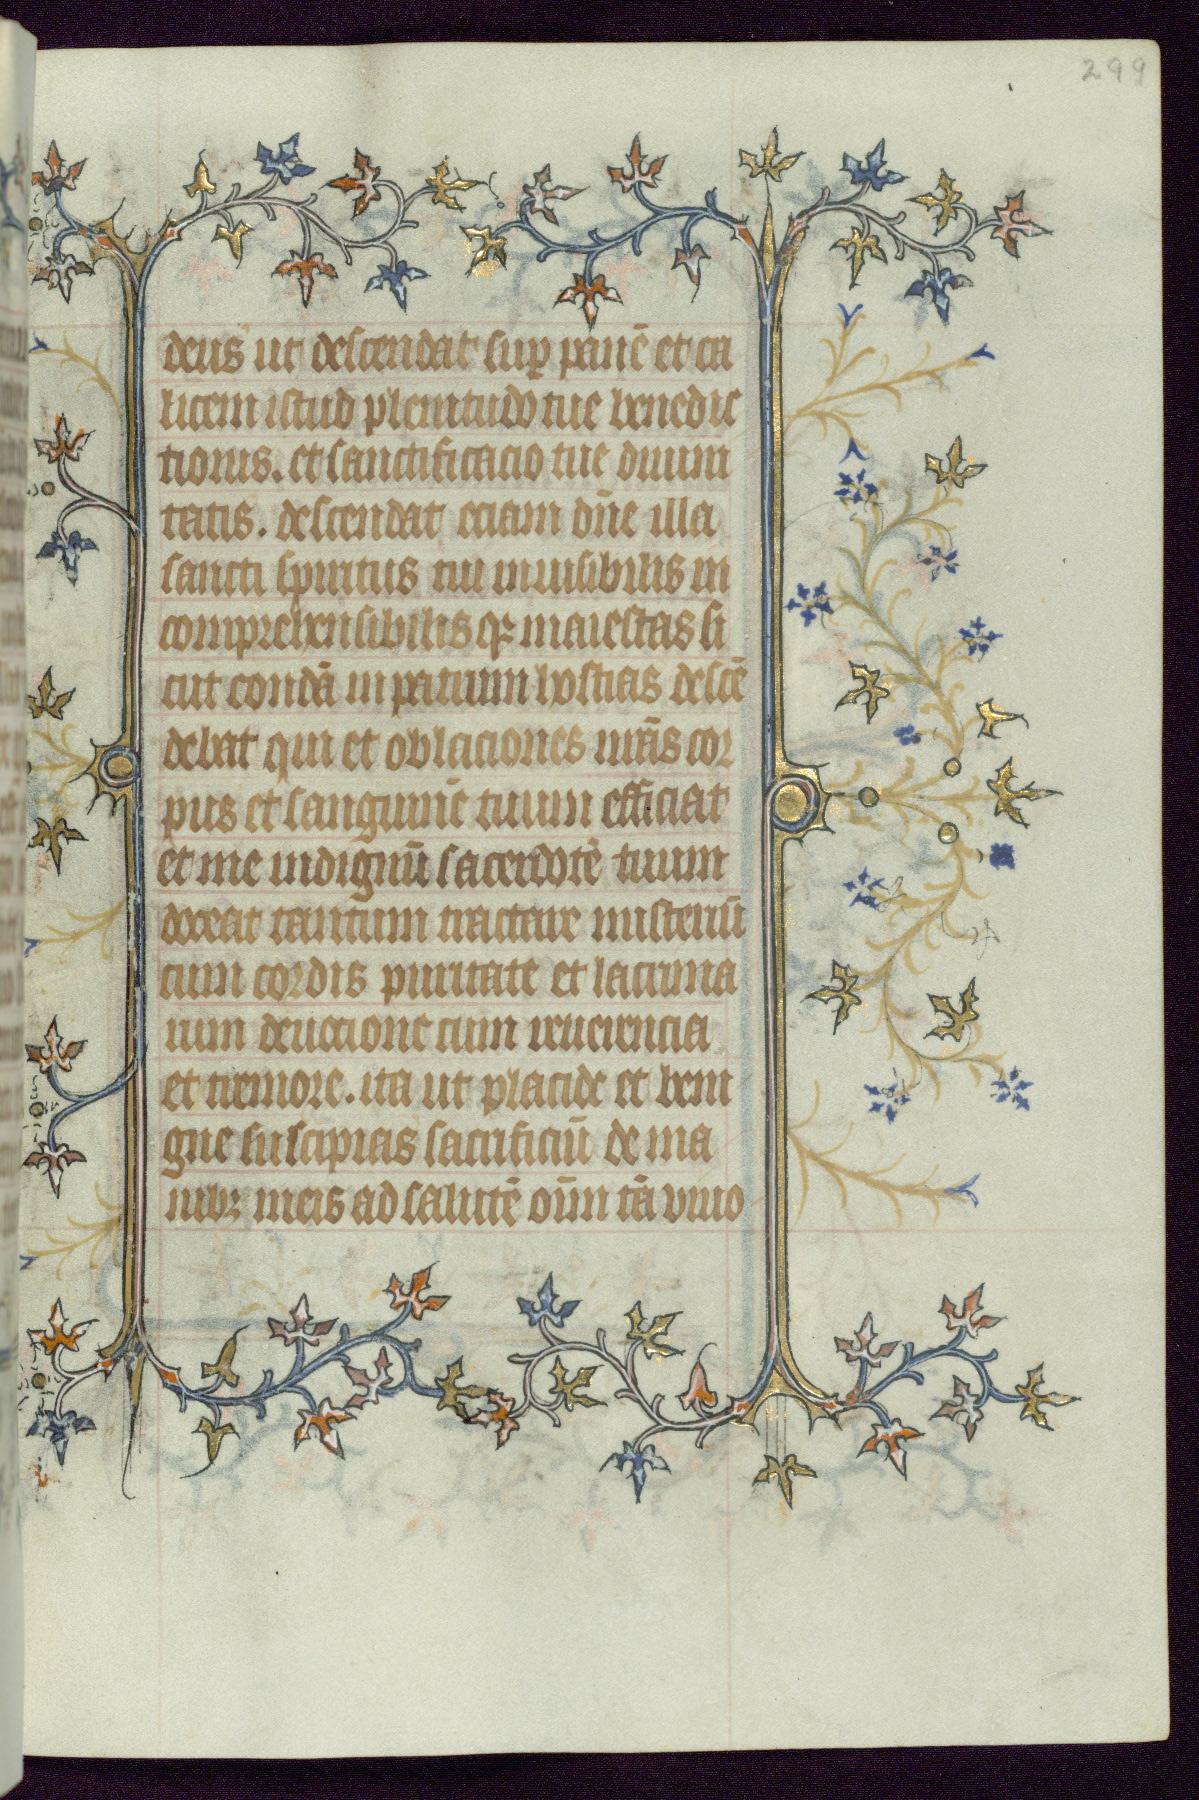 299
deus ut descendat sup̱ panē et ca
licem istud plenitudo tue benedic
tionis. et sanctificacio tue diuini
tatis. descendat eciam dn̄e illa
sancti spiritus tui inuisibilis in
comprehensibilis qꝫ maiestas si
cut condā in patrum hostias descē
debat qui et oblaciones nr̄as cor
pus et sanguinē tuum efficiat
et me indignū sacerdotē tuum
doceat tantum tractare misteriū
cum cordis puritate et lacrima
rum deuocione cum reuerencia
et tremore. ita ut placide et beni
gne suscipias sacrificiū de ma
nibꝫ meis ad salutē oīm tā viuo